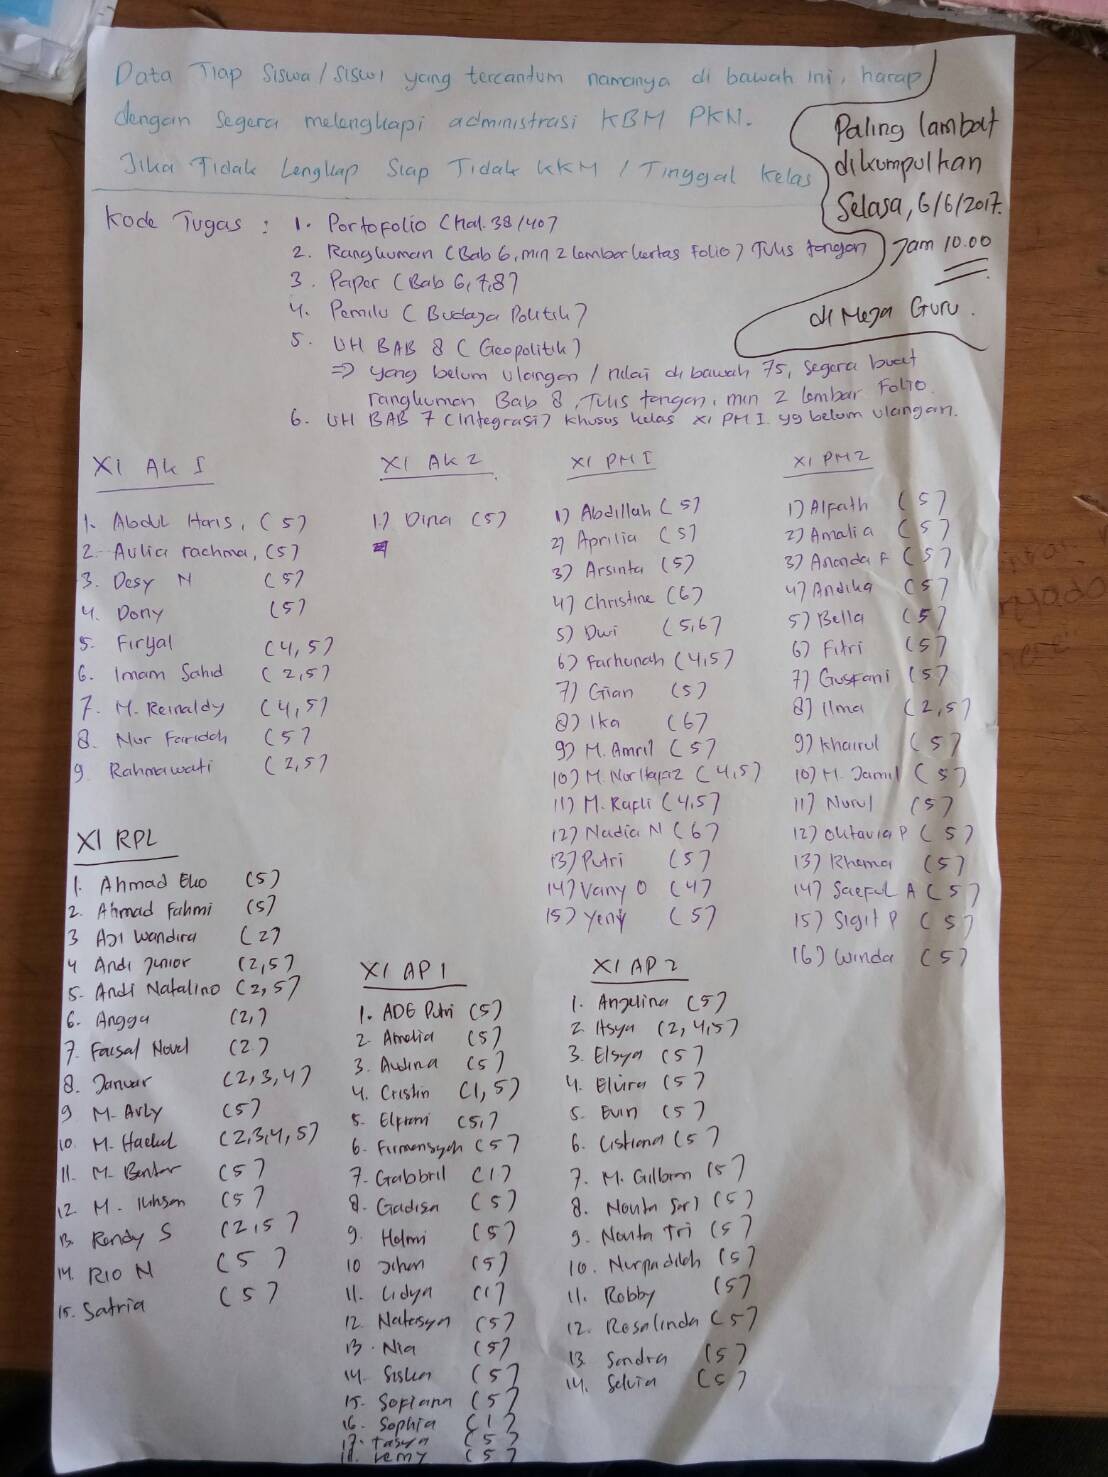 Data Tiap Siswa/Siswi yang tercantum namanya di bawah ini, harap
dengan segera melengkapi administrasi KBM PKN.
Jika Tidak Lengkap Siap Tidak KKM / Tinggal Kelas
Paling lambat
dikumpulkan
Selasa, 6/6/2017.
Jam 10.00
di Meja Guru.
Kode Tugas : 1. Portofolio (Hal. 38/40)
2. Rangkuman (Bab 6, min 2 lembar kertas Folio) Tulis tangan
3. Paper (Bab 6,7,8)
4. Pemilu (Budaya Politik)
5. UH BAB 8 (Geopolitik)
=> yang belum ulangan / nilai di bawah 75, segera buat
rangkuman Bab 8, Tulis tangan, min 2 lembar Folio.
6. UH BAB 7 (Integrasi) Khusus kelas XI PM I yg belum ulangan.
XI AK I
1. Abdul Haris, (5)
2. Aulia rachma, (5)
3. Desy N (5)
4. Dony (5)
5. Firyal (4,5)
6. Imam Sahid (2,5)
7. M. Reinaldy (4,5)
8. Nur Faridah (5)
9. Rahmawati (2,5)
XI AK 2
1.) Dina (5)
XI PM I
1) Abdillah (5)
2) Aprilia (5)
3) Arsinta (5)
4) Christine (6)
5) Dwi (5,6)
6) Farhunah (4,5)
7) Gian (5)
8) Ika (6)
9) M. Amril (5)
10) M. Nor Hafiz (4,5)
11) M. Rafli (4,5)
12) Nadia N (6)
13) Putri (5)
14) Vany O (4)
15) Yeny (5)
XI PM2
1) Alfath (5)
2) Amalia (5)
3) Ananda F (5)
4) Andika (5)
5) Bella (5)
6) Fitri (5)
7) Gusfani (5)
8) Ilma (2,5)
9) Khairul (5)
10) M. Jamil (5)
11) Nurul (5)
12) Oktavia P (5)
13) Rhema (5)
14) Saeful A (5)
15) Sigit P (5)
16) Winda (5)
XI RPL
1. Ahmad Eko (5)
2. Ahmad Fahmi (5)
3 Aji Wandira (2)
4 Andi Junior (2,5)
5. Andi Natalino (2,5)
6. Angga (2,)
7. Faisal Novel (2)
8. Januar (2,3,4)
9 M. Arly (5)
10. M. Haekal (2,3,4,5)
11. M. (5)
12 M. Ikhsan (5)
13. Rendy S (2,5)
14. RIO N (5)
15. Satria (5)
XI AP 1
1. ADE Putri (5)
2. Amelia (5)
3. Audina (5)
4. Cristin (1,5)
5. (5,)
6. Firmansyah (5)
7. Gabbril (1)
8. Gadisa (5)
9. Helmi (5)
10 Jihan (5)
11. Lidya (1)
12 Natasya (5)
13. Nia (5)
14. Siska (5)
15. Sofiana (5)
16. Sophia (1)
17. Tasya (5)
18. (5)
XI AP 2
1. Angelina (5)
2. Asya (2,4,5)
3. Elsya (5)
4. Elvira (5)
5. Evin (5)
6. (5)
7. M. Gilbran (5)
8. Novita Sari (5)
9. Novita Tri (5)
10. Nurpadilah (5)
11. Robby (5)
12. Rosalinda (5)
13 Sandra (5)
14. Selvia (5)